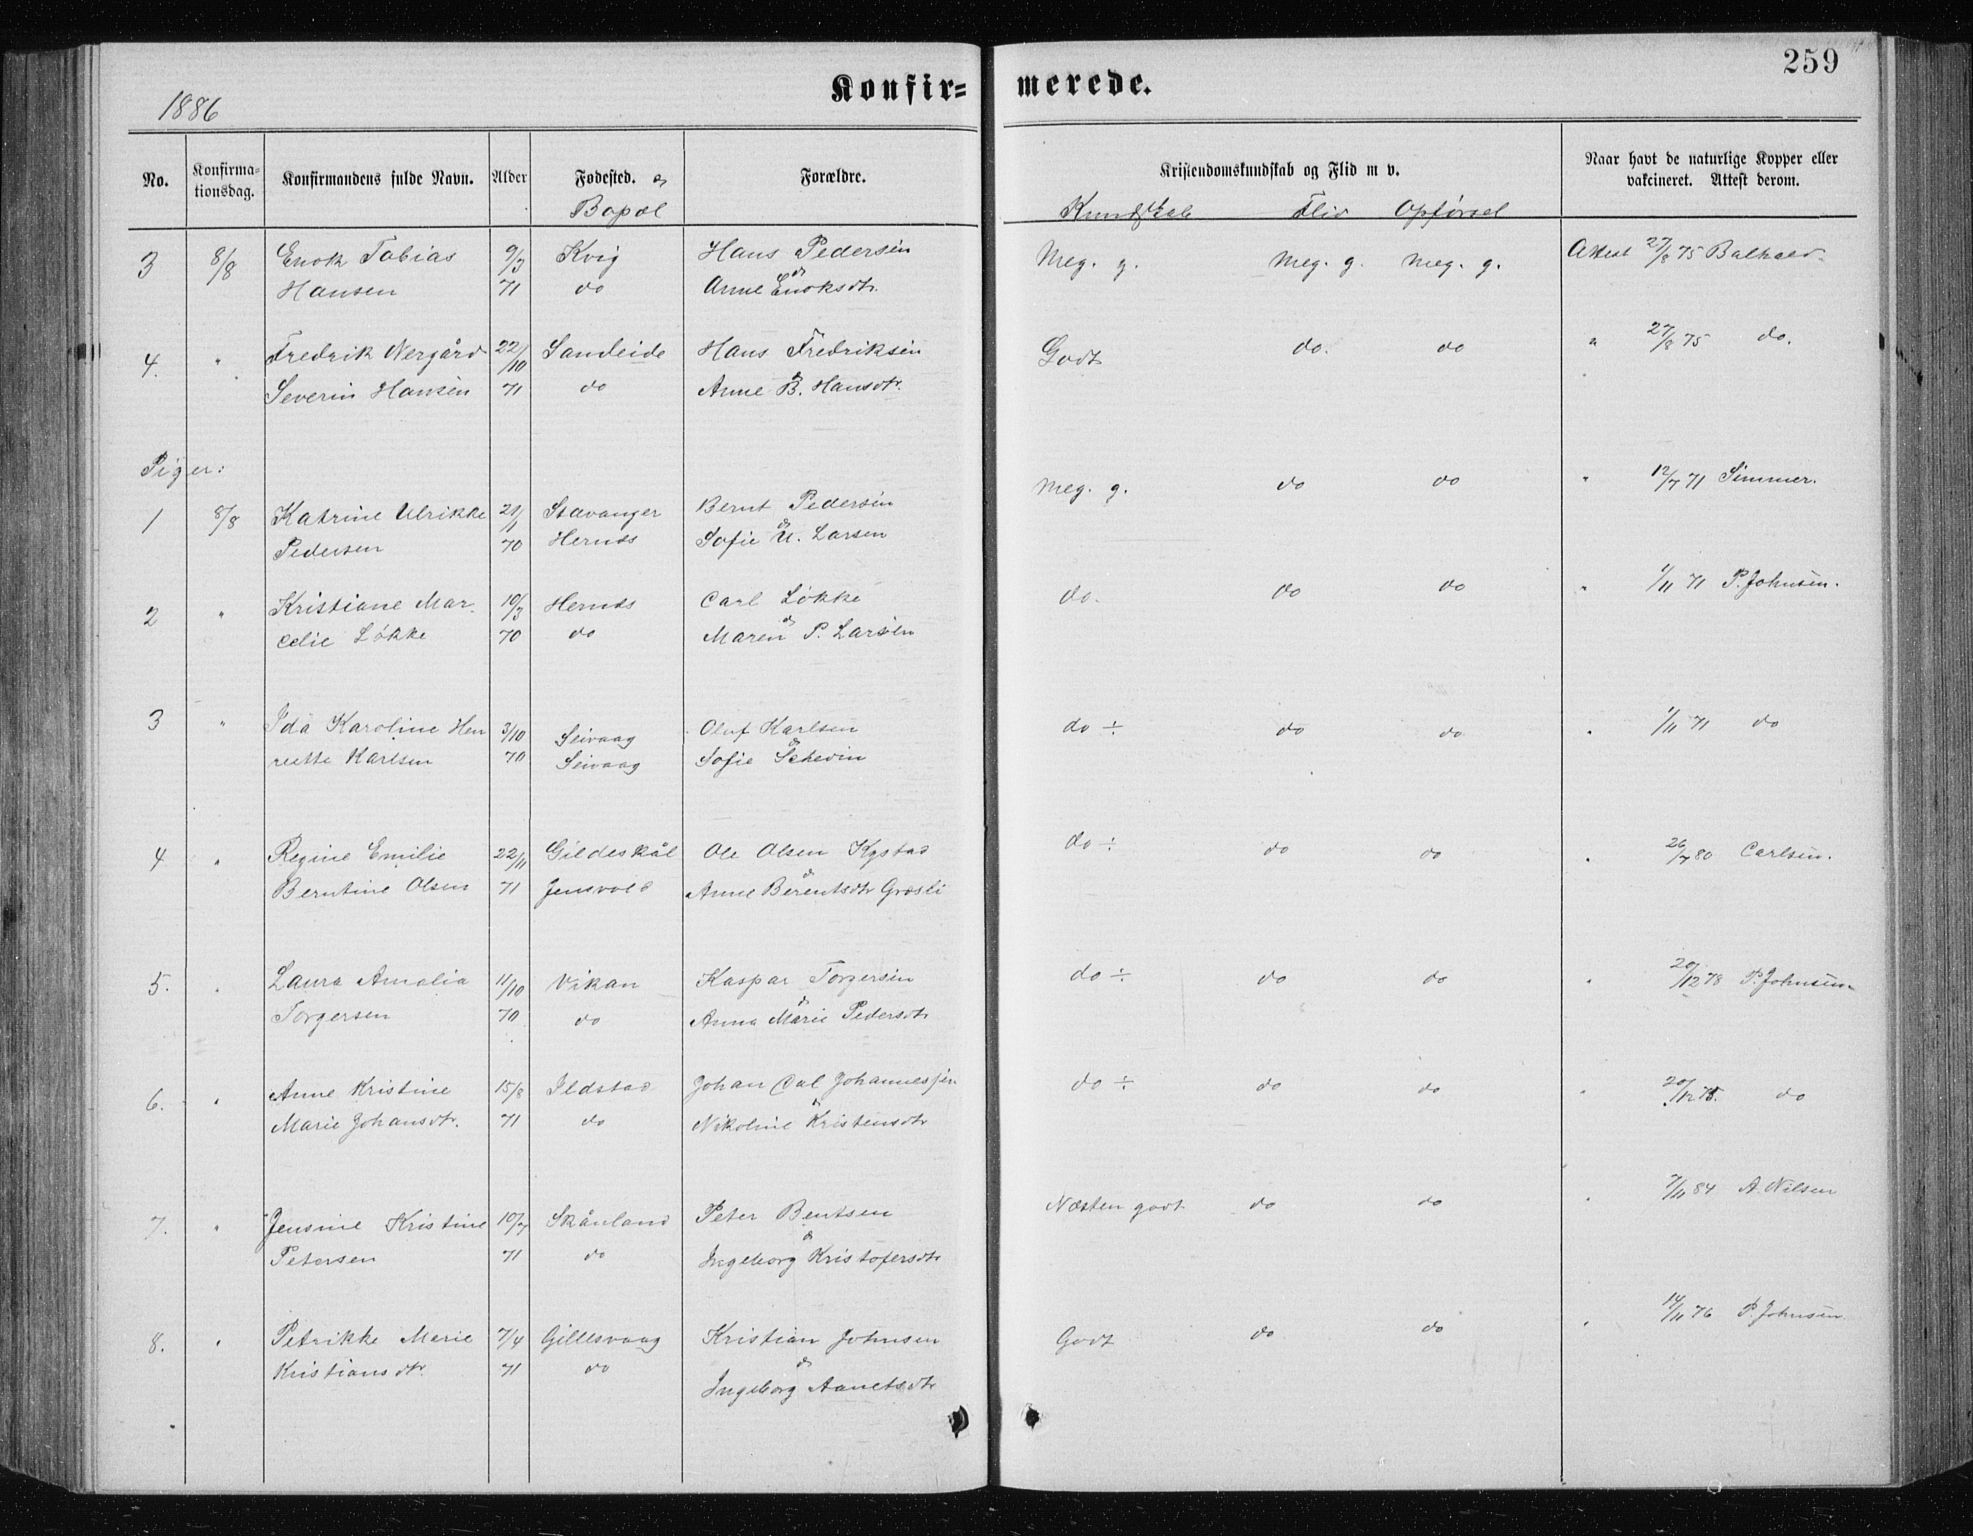 259
Konfir= merede.
1886
No. Konfirma-tionsdag. Konfirmandens fulde Navn. Alder Fødested. og Bopæl Forældre. Kristendomskundskab og Flid m v. Naar havt de naturlige Kopper eller vakcineret. Attest derom.
Kundskab Flid Opførsel
3 8/8 Enok Tobias 9/3 Kvig Hans Pedersen Meg. g. Meg. g. Meg. g. Attest 27/8 75
Hansen 71 do Anne Enoksdtr.
4. " Fredrik Nergård 22/10 Sandeide Hans Fredriksen Godt do. do " 27/8 75 do.
Severin Hansen 71 do Anne B. Hansdtr.
Piger:
1 8/8 Katrine Ulrikke 21/1 Stavanger Bernt Pedersen Meg. g. do do " 12/7 71 Simmer.
Pedersen 70 Hernes Sofie U. Larsen
2 " Kristiane Mar- 10/3 Hernes Carl Løkke do. do do " 1/11 71 P. Johnsen.
celie Løkke 70 do Maren P. Larsen
3 " Ida Karoline Hen 3/10 Seivaag Oluf Karlsen do ÷ do do " 1/11 71 do
riette Karlsen 70 Seivaag Sofie Schevin
4 " Regine Emilie 22/11 Gildeskål Ole Olsen Kystad do ÷ do do " 26/7 80 Carlsen.
Berntine Olsen 71 Jensvold Anne Berentsdtr Græsli
5. " Laura Amalia 11/10 Vikan Kaspar Torgersen do ÷ do do " 20/12 78 P. Johnsen
Torgersen 70 do Anna Marie Pedersdtr
6. " Anne Kristine 15/8 Ildstad Johan Cal Johannessen do ÷ do do " 20/12 78. do
Marie Johansdtr. 71 do Nikoline Kristensdtr
7. " Jensine Kristine 10/7 Skånland Peter Bentsen Næsten godt do do " 7/11 84 A. Nilsen
Petersen 71 do Ingeborg Kristofersdtr
8. " Petrikke Marie 7/4 Gillesvaag Kristian Johnsen Godt do do " 14/11 76 P. Johnsen
Kristiansdtr. 71 do Ingeborg Aanetsdtr